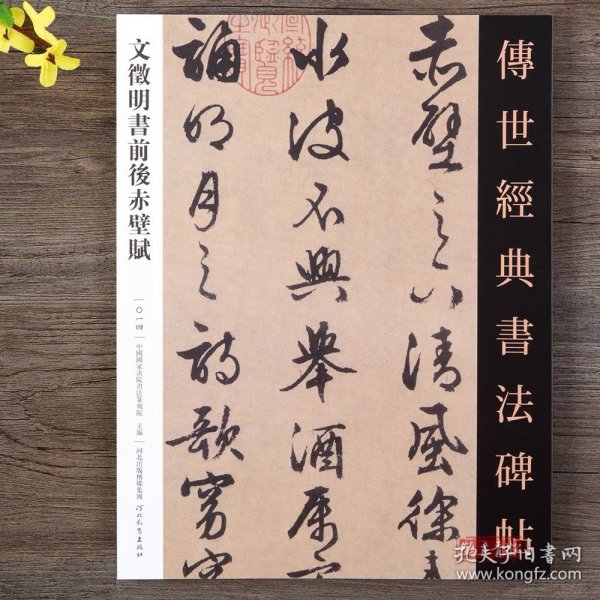 傳世經典書法碑帖
赤壁之下清風徐來
水波不興舉酒屬客
誦明月之詩歌窈窕
文徵明書前後赤壁賦
〇一四
中國國家畫院書法篆刻院 主編
河北出版傳媒集團
河北教育出版社
孔夫子旧书网
www.kongfz.com